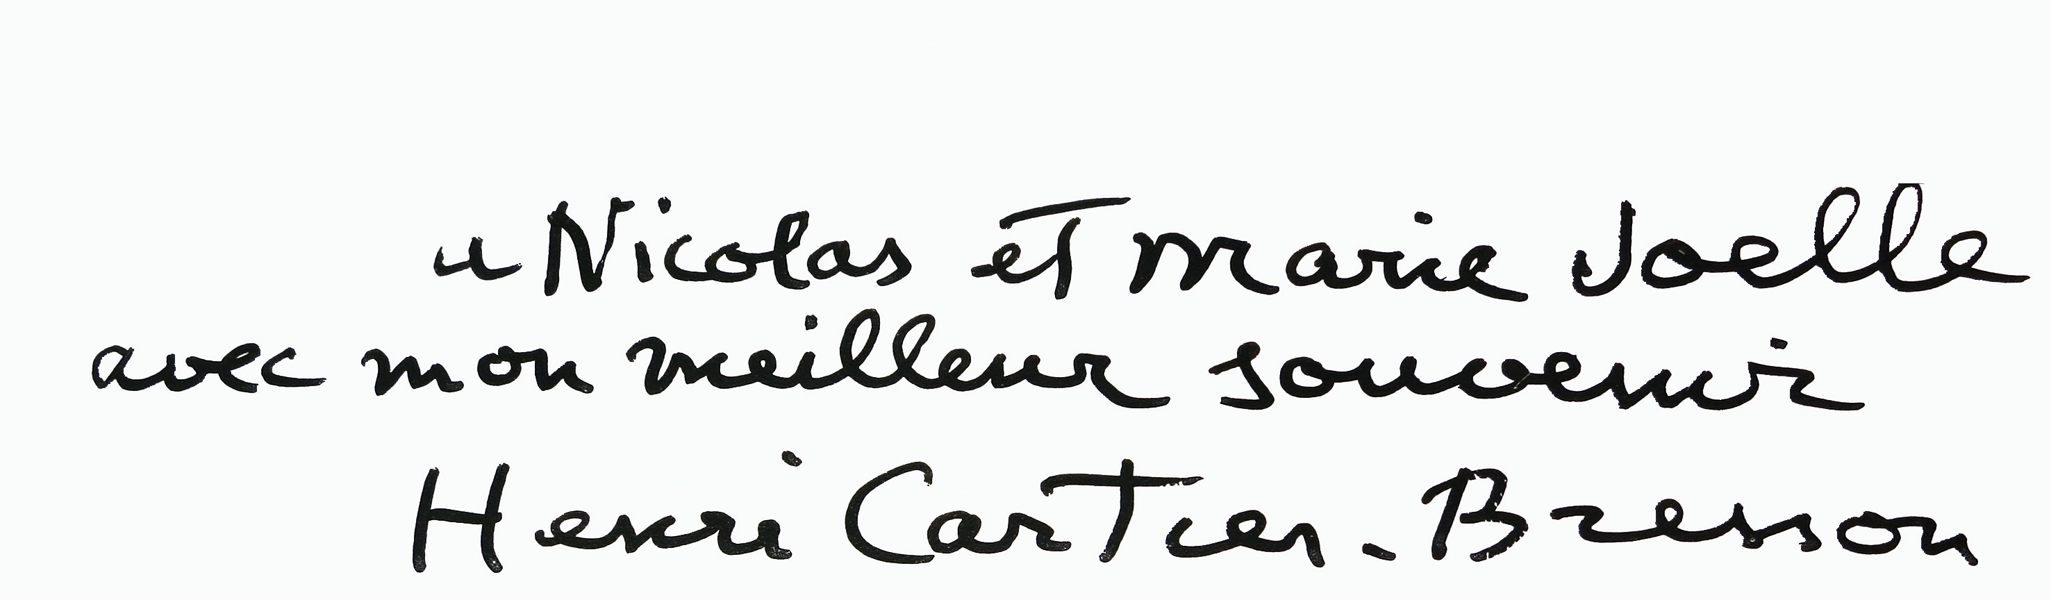 a Nicolas et Marie Joelle
avec mon meilleur souvenir
Henri Cartier-Bresson